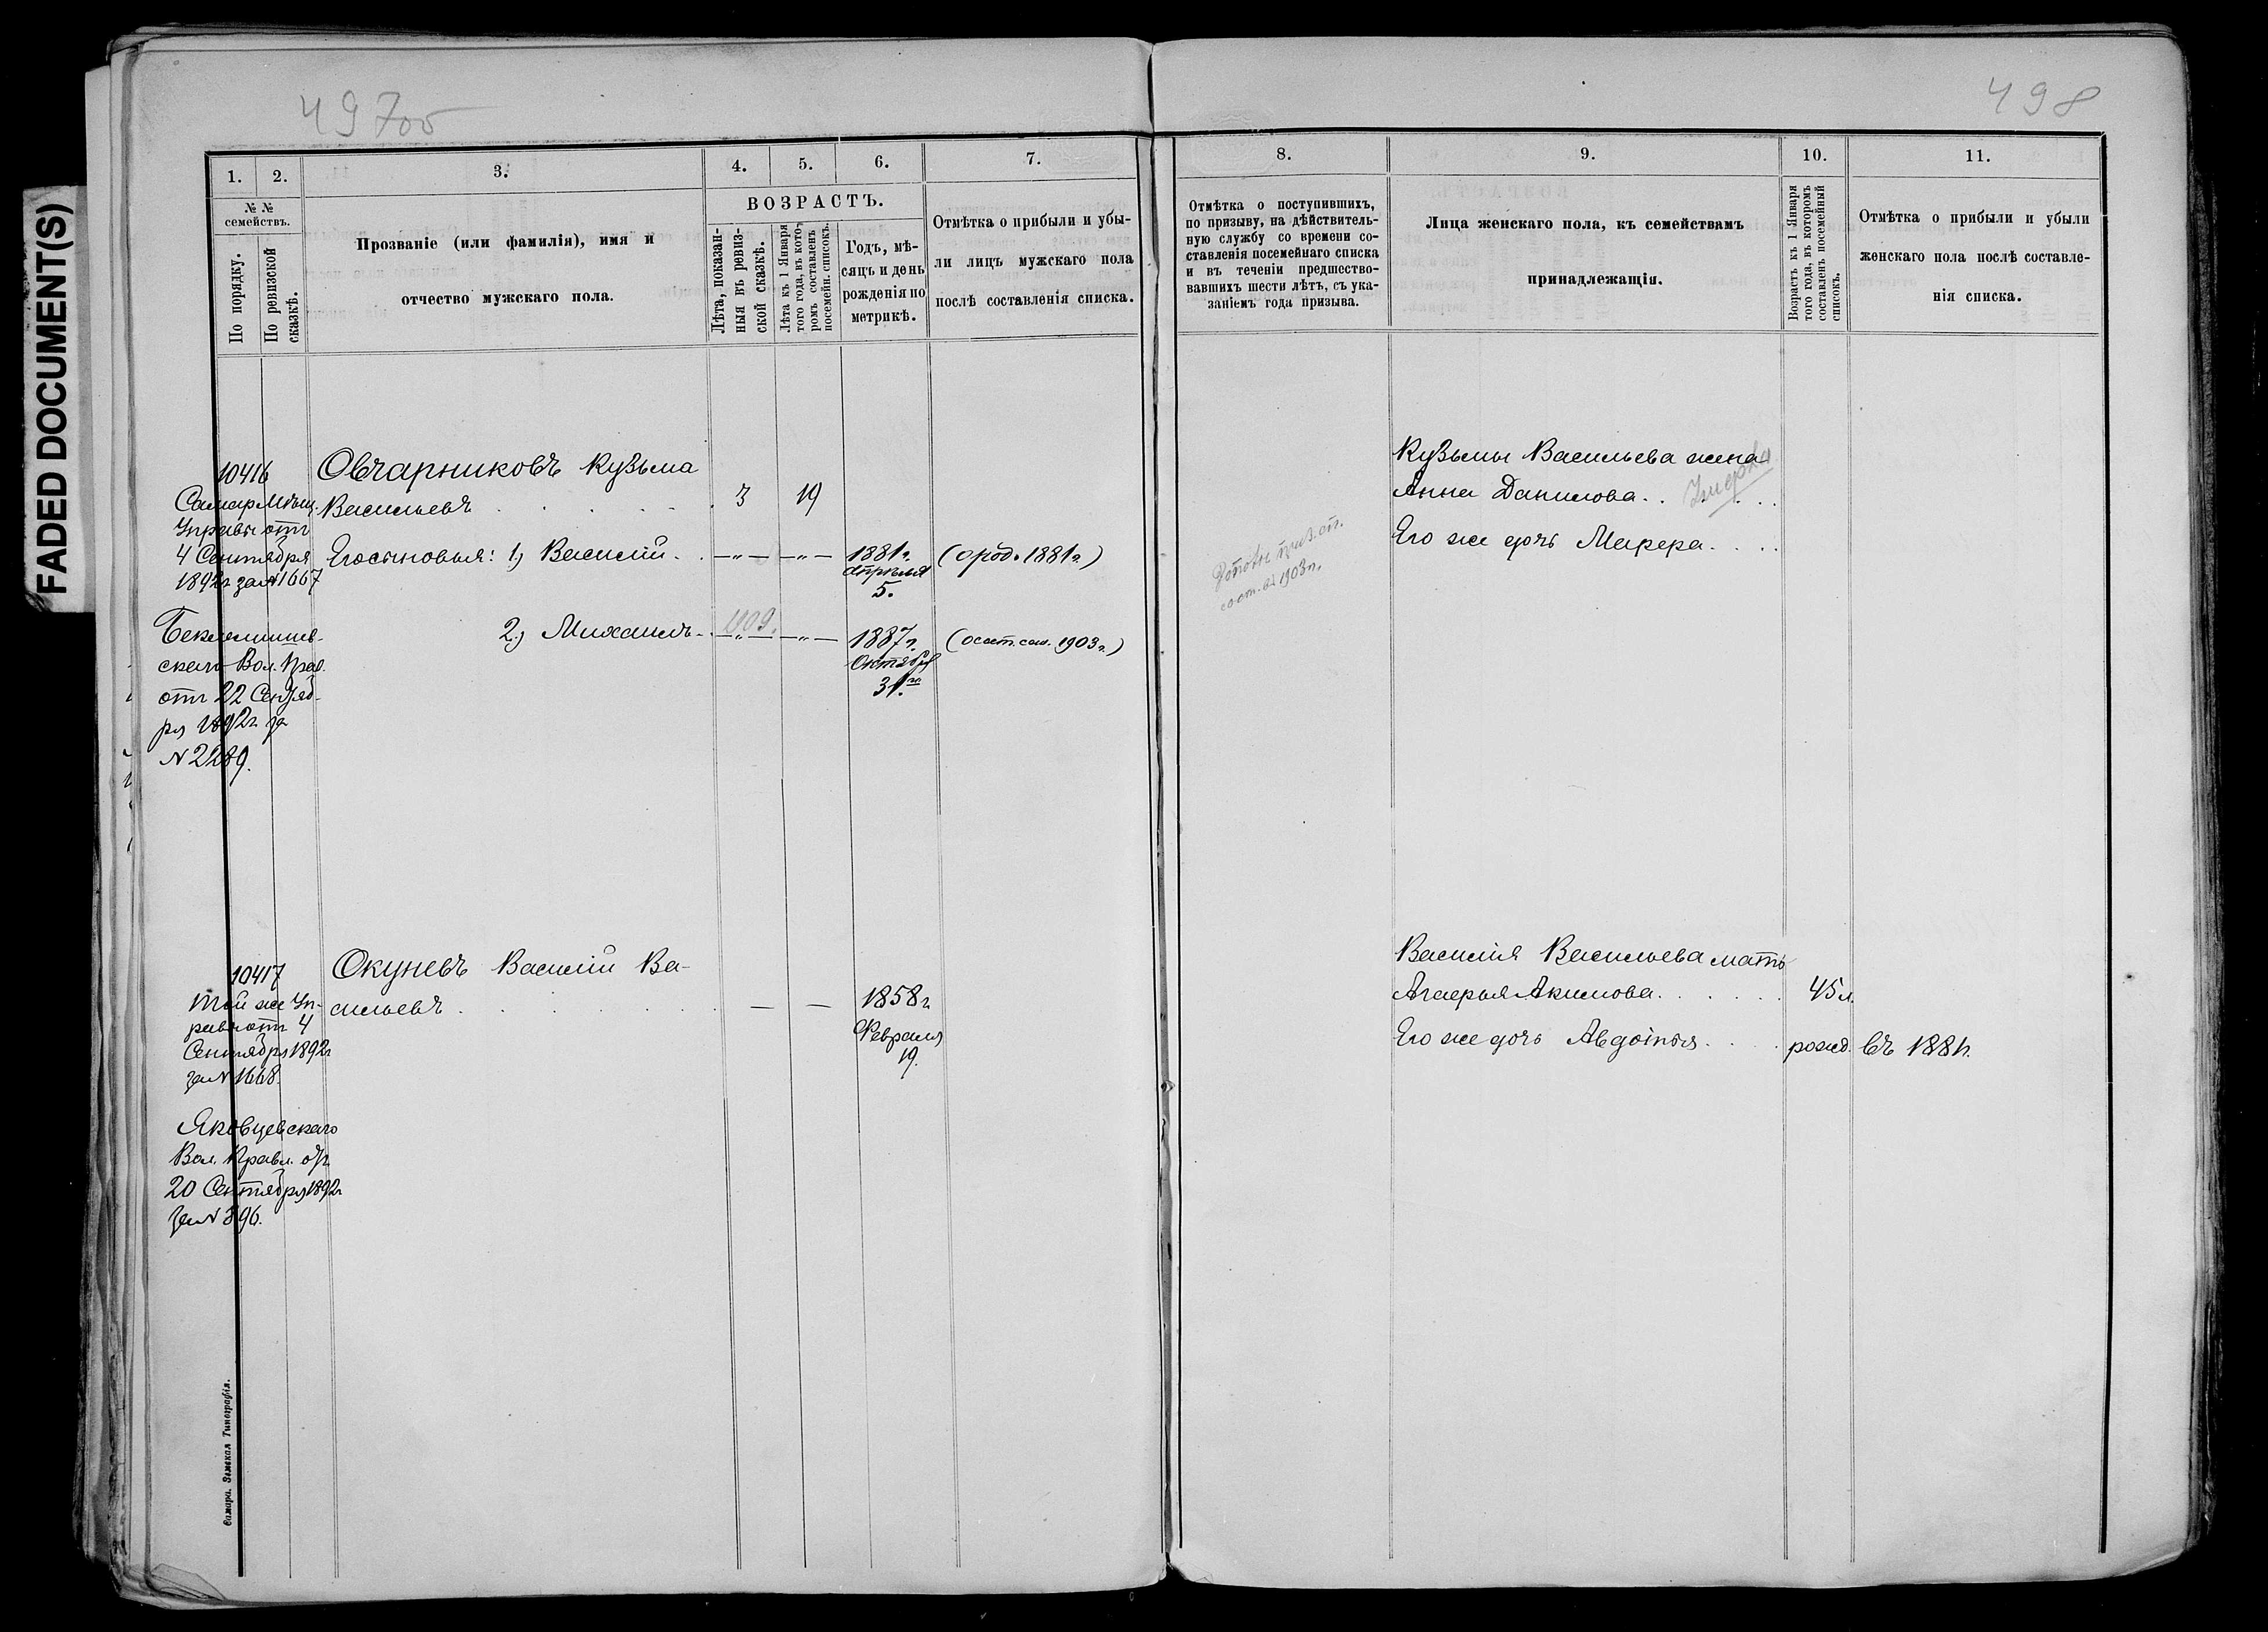 FADED DOCUMENT(S)
497об
498
1.
2.
3.
4.
5.
6.
7.
№ №
семействъ.
По порядку.
По ревизской
сказкѣ.
Прозваніе (или фамилія), имя и
отчество мужскаго пола.
ВОЗРАСТЪ.
Лѣта, показан-
ныя въ ревиз-
ской сказкѣ.
Лѣта къ 1 Января
того года, въ кото-
ромъ составленъ
посемейн. списокъ.
Годъ, мѣ-
сяцъ и день
рожденія по
метрикѣ.
Отмѣтка о прибыли и убы-
ли лицъ мужскаго пола
послѣ составленія списка.
10416
Самар. Мѣщ.
Управы отъ
4 Сентября
1892г. за № 1667
Овчарниковъ Кузьма
Васильевъ 3 19
Его сыновья: 1) Василій — „ — — „ — 1881г. (о род. 1881г.)
Апрѣля
5.
2) Михаилъ — „ — — „ — 1887г. (о сост. сем. 1903г.)
1909.
Октября
31го
Беклемишев-
скаго Вол. Прав.
отъ 22 Сентяб-
ря 1892г. за
№ 2289.
10417
Той же Уп-
равы отъ 4
Сентября 1892г
за № 1668.
Окуневъ Василій Ва-
сильевъ — — 1858г.
Февраля
19.
Вол. Правл. отъ
20 Сентября 1892г
за № 396.
Самара. Земская Типографія.
8.
9.
10.
11.
Отмѣтка о поступившихъ,
по призыву, на дѣйствитель-
ную службу со времени со-
ставленія посемейнаго списка
и въ теченіи предшество-
вавшихъ шести лѣтъ, съ ука-
заніемъ года призыва.
Лица женскаго пола, къ семействамъ
принадлежащія.
Возрастъ къ 1 Января
того года, въ которомъ
составленъ посемейный
списокъ.
Отмѣтка о прибыли и убыли
женскаго пола послѣ составле-
нія списка.
Кузьмы Васильева жена
Анна Данилова. Умерла
Его же дочь Марѳа
1903г.
Василія Васильева мать
Агаѳья Акимова 45 л.
Его же дочь Авдотья рожд. въ 1881г.